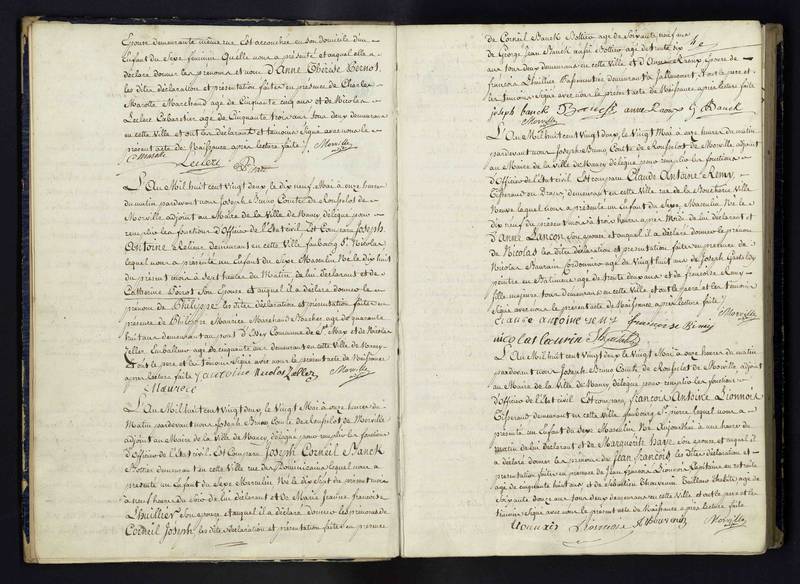 Epouse demeurante même rue Est accouchée en son domicile d'un
Enfant du Sexe féminin. Quelle nous a présenté et auquel elle a
déclaré donner les prénoms et nom d'Anne Thérèse Pernot.
les dites déclaration et présentation faites en présence de Charles
Marotte Marchand agé de Cinquante cinq ans et de Nicolas
Leclere Cabartier agé de Cinquante trois ans tous deux demeurans
en cette ville et ont les déclarant et temoins Signé avec nous le
présent acte de Naissance après lecture faite /. Morville
Leclere
L'An Mil huit cent Vingt deux, le dix neuf Mai à onze heures
du matin pardevant nous Joseph Bruno Comte de Rouselot de
Morville adjoint au Maire de la Ville de Nancy délégué pour
remplir les fonctions d'Officier de l'Etat civil Est Comparu Joseph
Antoine Relieur demeurant en cette Ville faubourg St Nicolas
lequel nous a présenté un Enfant du Sexe Masculin Né le dix huit
du présent mois à Sept heures du Matin de lui déclarant et de
Catherine Poirot Son Epouse et auquel il a déclaré donner le
prénom de Philippe les dites déclaration et présentation faites en
présence de Philippe Maurice Marchand Boucher agé de quarante
huit ans demeurant au pont d'Essey Commune de St Max et de Nicolas
Zeller Emballeur agé de cinquante ans demeurant en cette Ville de Nancy
Et ont le père et les témoins Signé avec nous le présent acte de Naissance
après lecture faite / J antoine Nicolas Zeller Morville
Maurice
L'An Mil huit cent Vingt deux, le Vingt Mai à onze heures du
Matin pardevant nous Joseph Bruno Comte de Rouselot de Morville
adjoint au Maire de la Ville de Nancy délégué pour remplir les fonctions
d'Officier de l'Etat civil. Est Comparu Joseph Corneil Banck
Bottier demeurant en cette Ville rue des Dominicains lequel nous a
présenté un Enfant du Sexe Masculin Né le Dix Sept du présent mois
à neuf heures du Soir de lui déclarant et de Marie Jeanne francoise
Lhuillier Son épouse et auquel il a déclaré donner les prénoms de
Corneil Joseph, les dites déclaration et présentation faites en présence
de Corneil Banck Bottier agé de Soixante neuf ans
de George Jean Banck aussi Bottier agé de trente six
ans tous deux demeurans en cette Ville et d'Anne Raoux Epouse de
francois Lhuillier Passementier demeurant à Et ont le père et
les temoins Signé avec nous le présent acte de Naissance après lecture faite
joseph banck anne raoux G Banck
Morville
L'An Mil huit cent Vingt deux, le Vingt Mai à onze heures du matin
pardevant nous Joseph Bruno Comte de Rouselot de Morville, adjoint
au Maire de la Ville de Nancy délégué pour remplir les fonctions
d'Officier de l'Etat civil. Est comparu Claude Antoine Remy,
Tisserand en demeurant en cette Ville rue de la Boucherie Ville
Neuve lequel nous a présenté un Enfant du Sexe Masculin Né le
dix neuf du présent mois à trois heures après Midi de lui déclarant et
d'Anne Lançon Son épouse et auquel il a déclaré donner le prénom
de Nicolas les dites déclaration et présentation faites en présence de
Nicolas Cordonnier agé de Vingt huit ans de Joseph
peintre en Batimens agé de trente deux ans et de francoise Remy
fille majeure tous demeurans en cette Ville et ont le père et les temoins
Signé avec nous le présent acte de Naissance après lecture faite /
Claude antoine remy francoise Remy Morville
nicolas
L'An Mil huit cent Vingt deux, le Vingt Mai à onze heures du matin
pardevant nous Joseph Bruno Comte de Rouselot de Morville, adjoint
au Maire de la Ville de Nancy délégué pour remplir les fonctions
d'Officier de l'Etat civil. Est comparu francois Antoine Lionnois
Tisserand demeurant en cette Ville faubourg St pierre lequel nous a
présenté un Enfant du Sexe Masculin Né Aujourd'hui à une heure du
matin de lui déclarant et de Marguerite haye Son épouse et auquel il
a déclaré donner les prénoms de Jean francois, les dites déclaration et
présentation faites en présence de Jean francois Lionnois Capitaine en retraite
agé de cinquante huit ans et de Sébastien Thouvenin Tailleur d'habits agé de
Soixante douze ans tous deux demeurans en cette Ville et ont le père et les
témoins Signé avec nous le présent acte de Naissance après lecture faite
Lionnois Lionnois Thouvenin Morville